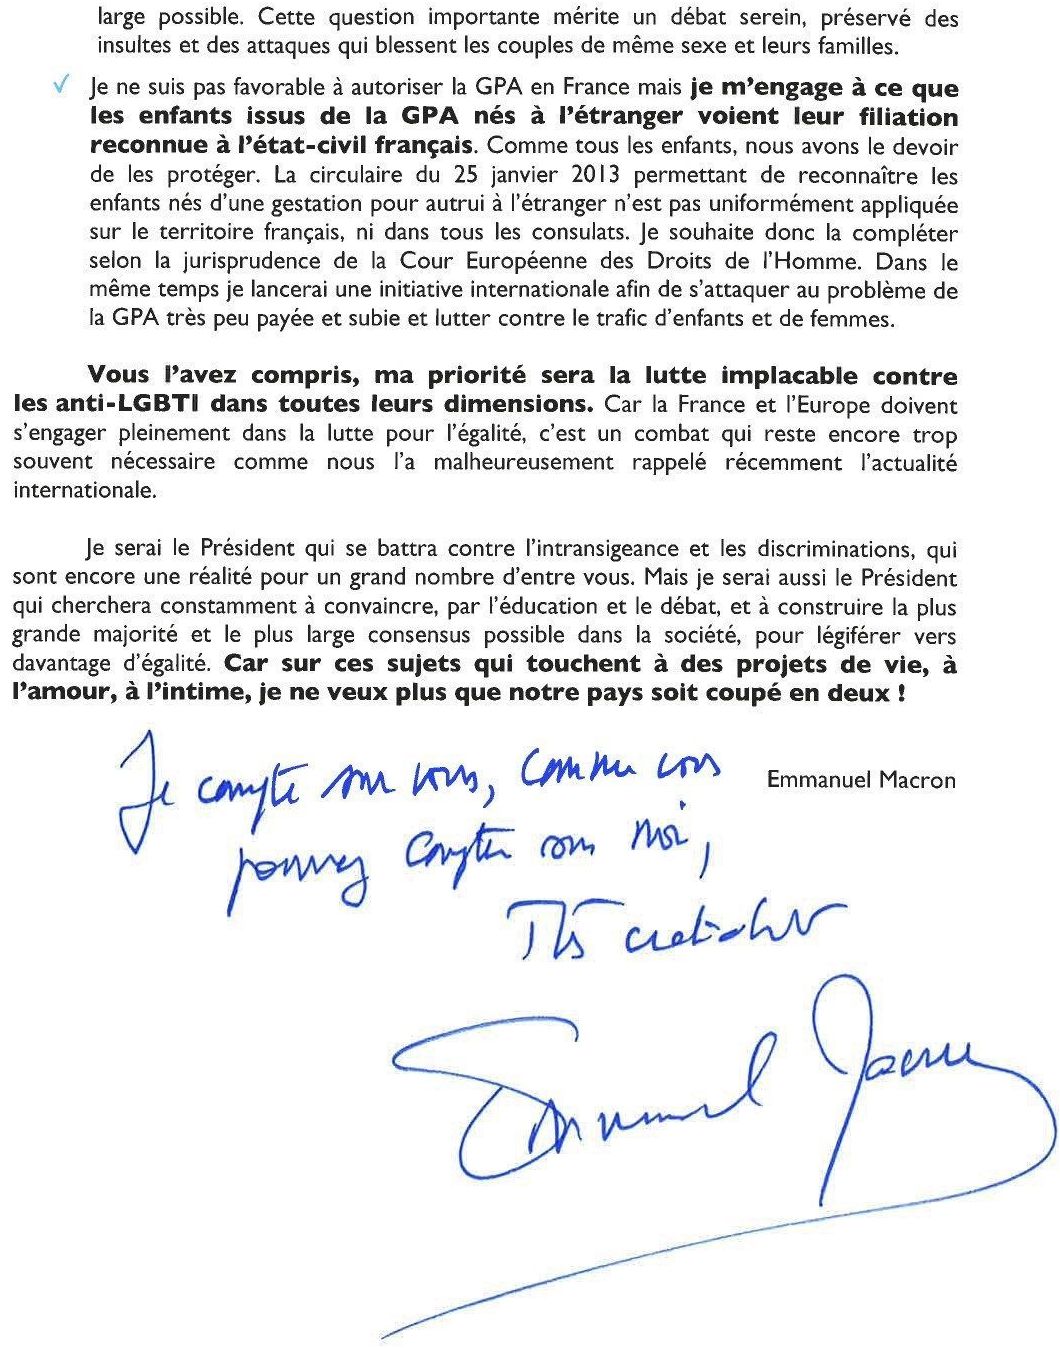 large possible. Cette question importante mérite un débat serein, préservé des
insultes et des attaques qui blessent les couples de même sexe et leurs familles.
✓ Je ne suis pas favorable à autoriser la GPA en France mais je m'engage à ce que
les enfants issus de la GPA nés à l'étranger voient leur filiation
reconnue à l'état-civil français. Comme tous les enfants, nous avons le devoir
de les protéger. La circulaire du 25 janvier 2013 permettant de reconnaître les
enfants nés d'une gestation pour autrui à l'étranger n'est pas uniformément appliquée
sur le territoire français, ni dans tous les consulats. Je souhaite donc la compléter
selon la jurisprudence de la Cour Européenne des Droits de l'Homme. Dans le
même temps je lancerai une initiative internationale afin de s'attaquer au problème de
la GPA très peu payée et subie et lutter contre le trafic d'enfants et de femmes.
Vous l'avez compris, ma priorité sera la lutte implacable contre
les anti-LGBTI dans toutes leurs dimensions. Car la France et l'Europe doivent
s'engager pleinement dans la lutte pour l'égalité, c'est un combat qui reste encore trop
souvent nécessaire comme nous l'a malheureusement rappelé récemment l'actualité
internationale.
Je serai le Président qui se battra contre l'intransigeance et les discriminations, qui
sont encore une réalité pour un grand nombre d'entre vous. Mais je serai aussi le Président
qui cherchera constamment à convaincre, par l'éducation et le débat, et à construire la plus
grande majorité et le plus large consensus possible dans la société, pour légiférer vers
davantage d'égalité. Car sur ces sujets qui touchent à des projets de vie, à
l'amour, à l'intime, je ne veux plus que notre pays soit coupé en deux !
Je compte sur vous, comme vous
Emmanuel Macron
pouvez compter sur moi,
Très cordialement
Emmanuel Macron